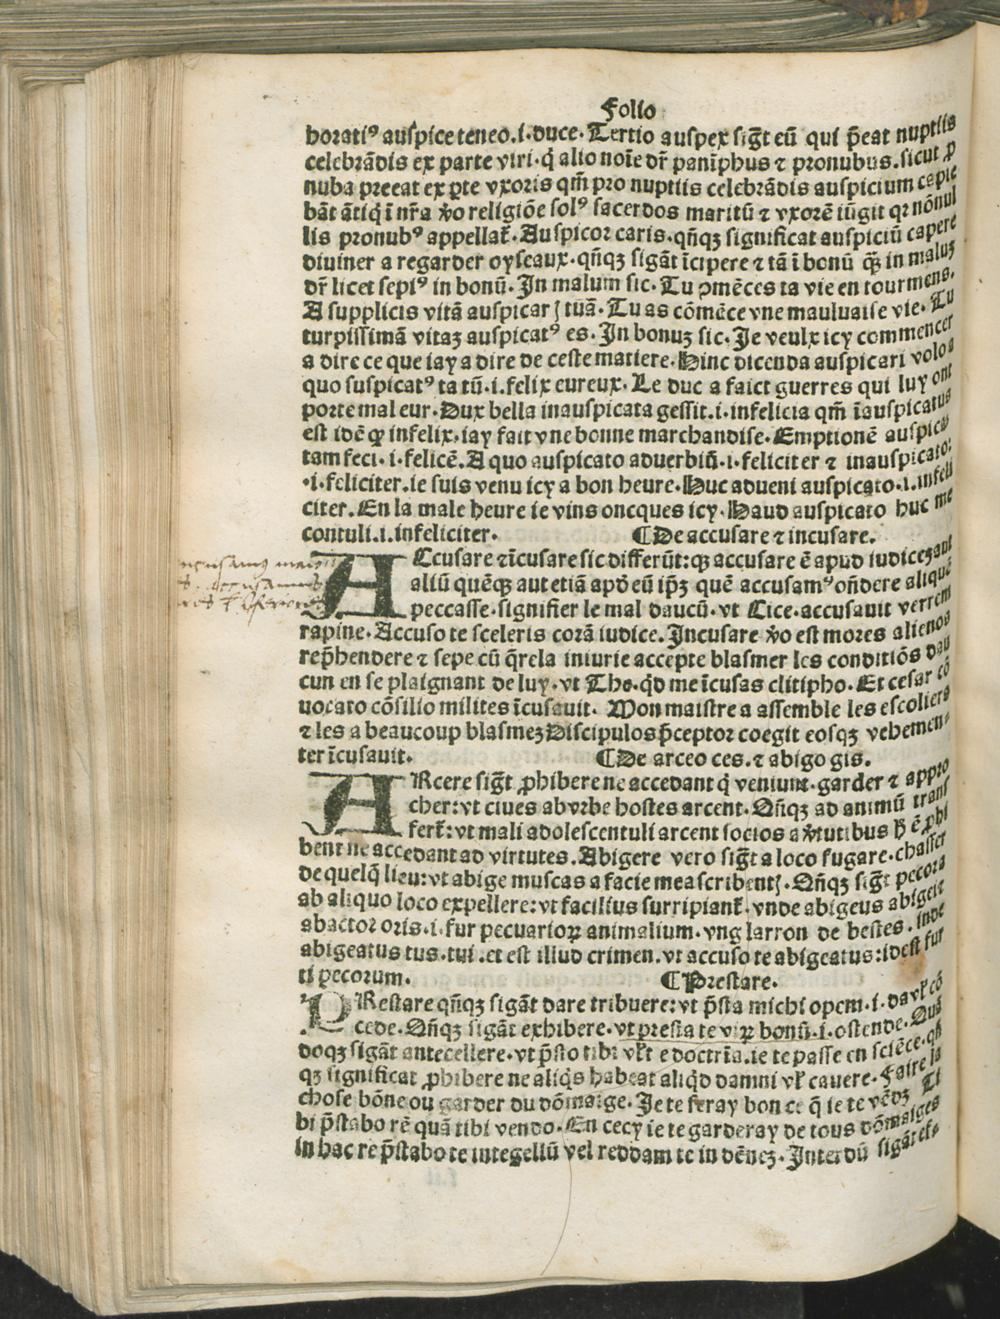 Folio
horatiꝰ auspice teneo.i.duce. Tertio auspex sigt̄ eū qui p̄eat nuptiis
celebrādis ex parte viri. q̄ alio noīe dr̄ panīphus ⁊ pronubus. sicut ꝓ
nuba preeat ex ꝑte vxoris qm̄ pro nuptiis celebrādis auspicium capie
bāt ātiq̄ ī nr̄a v̄o religiōe solꝰ sacerdos maritū ⁊ vxorē iūgit qꝛ nōnul
lis pronubꝰ appellat̄. Auspicor caris. qn̄qꝫ significat auspiciū capere
diuiner a regarder oyseaux. qn̄qꝫ sigāt īcipere ⁊ tā ī bonū ꝙ̄ in maluꝫ
dr̄ licet sepiꝰ in bonū. In malum sic. Tu ꝯmēces ta vie en tourmens.
A suppliciis vitā auspicarꝭ tuā. Tu as cōmēce vne mauluaise vie. Tu
turpissimā vitaꝫ auspicatꝰ es. In bonuꝫ sic. Je veulx icy commencer
a dire ce que iay a dire de ceste matiere. Hinc dicenda auspicari volo a
quo suspicatꝰ ta tū.i.felix eureux. Le duc a faict guerres qui luy ont
porte mal eur. Dux bella inauspicata gessit.i.infelicia qm̄ īauspicatus
est idē ꝙ infelix. iay fait vne bonne marchandise. Emptionē auspica
tam feci.i.felicē. A quo auspicato aduerbiū.i.feliciter ⁊ inauspicato:
.i.feliciter. ie suis venu icy a bon heure. Huc adueni auspicato.i.infeli
citer. En la male heure ie vins oncques icy. Haud auspicato huc me
contuli.i.infeliciter. ¶De accusare ⁊ incusare.
ACcusare ⁊ īcusare sic differūt: qꝫ accusare ē apud iudiceꝫ aut
aliū quēqꝫ aut etiā apd̄ eū ip̄ꝫ quē accusamꝰ on̄dere aliquē
peccasse. signifier le mal daucū. vt Cice. accusauit verrem
rapine. Accuso te sceleris corā iudice. Incusare v̄o est mores alienos
rep̄hendere ⁊ sepe cū q̄rela iniurie accepte blasmer les conditiōs dau
cun en se plaignant de luy. vt The. qd̄ me īcusas clitipho. Et cesar cō
uocato cōsilio milites īcusauit. Mon maistre a assemble les escoliers
⁊ les a beaucoup blasmeꝫ Discipulos p̄ceptor coegit eosqꝫ vehemen-
ter īcusauit. ¶De arceo ces. ⁊ abigo gis.
ARcere sigt̄ ꝓhibere ne accedant q̄ veniunt. garder ⁊ appro
cher: vt ciues ab vrbe hostes arcent. Qn̄qꝫ ad animū trans
fert̄: vt mali adolescentuli arcent socios a v̄tutibus ē ꝓhi
bent ne accedant ad virtutes. Abigere vero sigt̄ a loco fugare. chasser
de quelq̄ lieu: vt abige muscas a facie mea scribentꝭ. Qn̄qꝫ sigt̄ pecora
ab aliquo loco expellere: vt facilius surripiant̄. vnde abigeus abigei ⁊
abactor oris.i.fur pecuarioꝝ animalium. vng larron de bestes. inde
abigeatus tus. tui. et est illud crimen. vt accuso te abigeatus: idest fur
ti pecorum. ¶Prestare.
PRestare qn̄qꝫ sigāt dare tribuere: vt p̄sta michi opem.i.da vl̄ cō
cede. Qn̄qꝫ sigāt exhibere. vt presta te viꝝ bonū.i.ostende. Quā
doqꝫ sigāt antecellere. vt p̄sto tibi doctrīa. ie te passe en sciēce. qn̄
qꝫ significat ꝓhibere ne aliq̄s habeat aliqd̄ damni vl̄ cauere. Faire la
chose bōne ou garder du dōmaige. Je te feray bon ce q̄ ie te vēdꝫ Ti
bi p̄stabo rē quā tibi vendo. En cecy ie te garderay de tous dōmaiges
In hac re p̄stabo te integellū vel reddam te indēneꝫ. Interdū sigāt